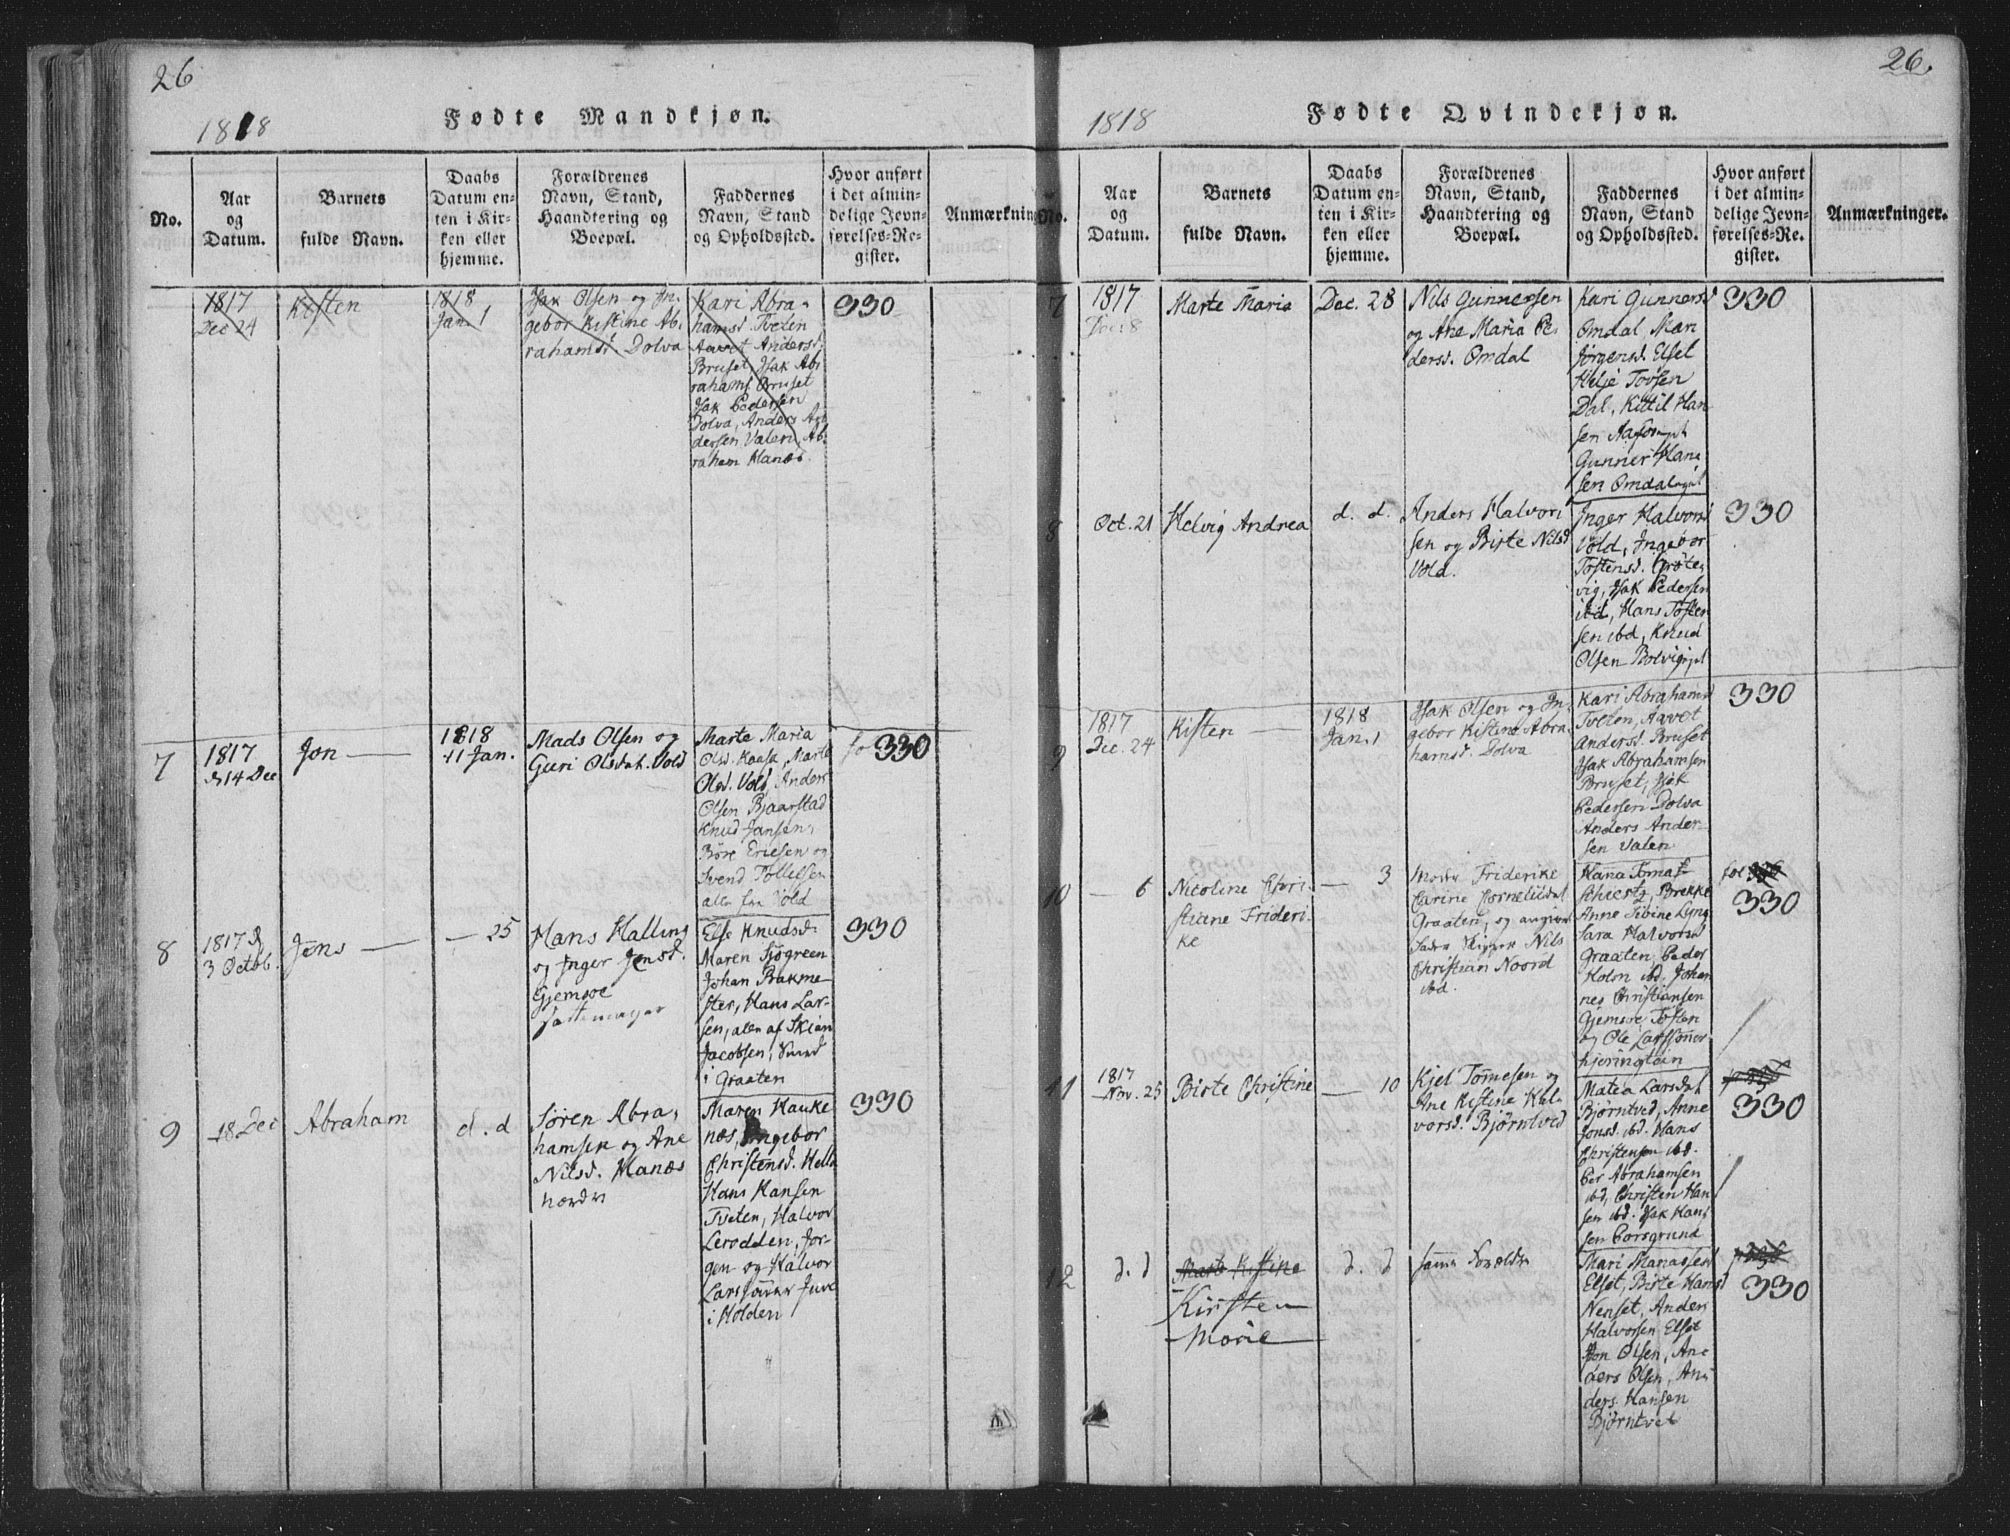 26
1818
Fødte Mandkjøn.
No.
Aar
og
Datum.
Barnets
fulde Navn.
Daabs
Datum en-
ten i Kir-
ken eller
hjemme.
Forældrenes
Navn, Stand,
Haandtering og
Boepæl.
Faddernes
Navn, Stand
og Opholdssted.
Hvor anført
i det almin-
delige Jevn-
førelses-Re-
gister.
Anmærkning
1817
Dec 24
Kisten
1818
Jan. 1
Isak Olsen og In-
gebor Kistine Ab-
rahamsd Dolva
Kari Abra-
hamsd. Tveten
Aavet Andersd.
Bruset, Isak Ab-
rahams Bruset
Isak Pedersen
Dolva, Anders An-
dersen Valen, Ab-
raham Hanæs.
330
7
1817
d 14 Dec
Jon
1818
11 Jan.
Mads Olsen og
Guri Olsdat. Vold
Marte Maria
Olsd. Kaasa, Marte
Olsd. Vold, Anders
Olsen Bjaarstad
Knud Jansen,
Böre Ericsen og
Svend Tollefsen
alle fra Vold
for 330
8
1817 d
3 Octob.
Jens
— 25
Hans Halling
og Inger Jensd.
Gjemsøe
Else Knudsd.
Maren Sjögreen
Johan Bakme-
ster, Hans Lar-
sen, alle af Skien
Jacobsen, Smed
i Graaten
330
9
18 Dec
Abraham
d. d
Sören Abra-
hamsen og Ane
Nilsd. Hanæs
nordre
Maren Hauke
næs, Ingebor
Christensd. Hella
Hans Hansen
Tveten, Halvor
Lerodden, Jör-
gen og Halvor
Larssönner Juve
i Holden
330
26.
1818
Fødte Qvindekjøn.
No.
Aar
og
Datum.
Barnets
fulde Navn.
Daabs
Datum en-
ten i Kir-
ken eller
hjemme.
Forældrenes
Navn, Stand,
Haandtering og
Boepæl.
Faddernes
Navn, Stand
og Opholdssted.
Hvor anført
i det almin-
delige Jevn-
førelses-Re-
gister.
Anmærkninger.
7
1817
Dec. 8
Marte Maria
Dec. 28
Nils Gunnersen
og Ane Maria Pe-
dersd. Omdal
Kari Gunnersd
Omdal Mari
Jörgensd. Elset
Helje Tovsen
Dal, Kittil Han
sen
Gunner Han-
sen Omdal
330
8
Oct. 21
Helvig Andrea
d. d.
Anders Halvor-
sen og Birte Nilsd
Vold.
Inger Halvorsd
Vold, Ingebor
Tostensd. Gröte-
vig, Isak Pedersen
ibd, Hans Tosten
sen ibd, Knud
Olsen Bolvig
330
9
1817
Dec. 24
Kisten
1818
Jan. 1
Isak Olsen og In-
gebor Kistine Abra-
hamsd. Dolva
Kari Abrahamsd
Tveten, Aavet
Andersd. Bruset
Isak Abrahamsen
Bruset, Isak
Pedersen Dolva
Anders Ander-
sen Valen
330
10
— 6
Nicoline Chri-
stiane Frideri-
ke
— 3
Moder Friderike
Carine Corneliusd
Graaten, og angiven
Fader Skipper Nils
Christian Noord
ibd.
Hana Tomas
Brekke
Anne Sibine Lyng
Sara Halvorsd
Graaten, Peder
Holm ibd, Johan
nes Christiansen
Gjemsøe Tosten
og Ole Larssönner
hjeringtain
for
330
11
1817
Nov. 25
Birte Christine
— 10
Kjel Tommesen og
Ane Kistine Hal-
vorsd. Bjørntved
Matea Larsdat
Bjørntved, Anne
Jonsd. ibd. Hans
Christensen ibd.
Per Abrahamsen
ibd, Christen Han
sen ibd. Isak Hans
sen Porsgrund
330
12
d. d
Marte Kistine
Kirsten
Marie
d. d
samme Forældre
Mari Manassesd
Elset, Birte Hansd
Nenset, Anders
Halvorsen Elset
Jon Olsen, An-
ders Olsen, An-
ders Hansen
Bjørntvet
330